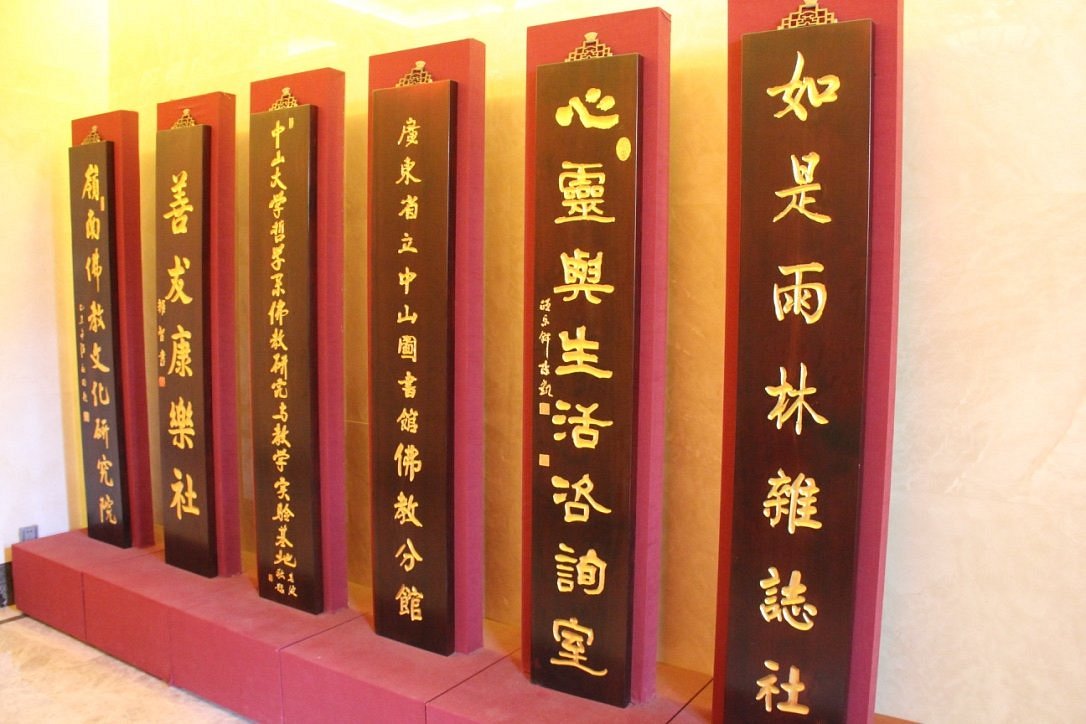 嶺南佛教文化研究院
善友康樂社
中山大学哲学系佛教研究与教学实验基地
廣東省立中山圖書館佛教分館
心靈與生活咨詢室
如是雨林雜誌社